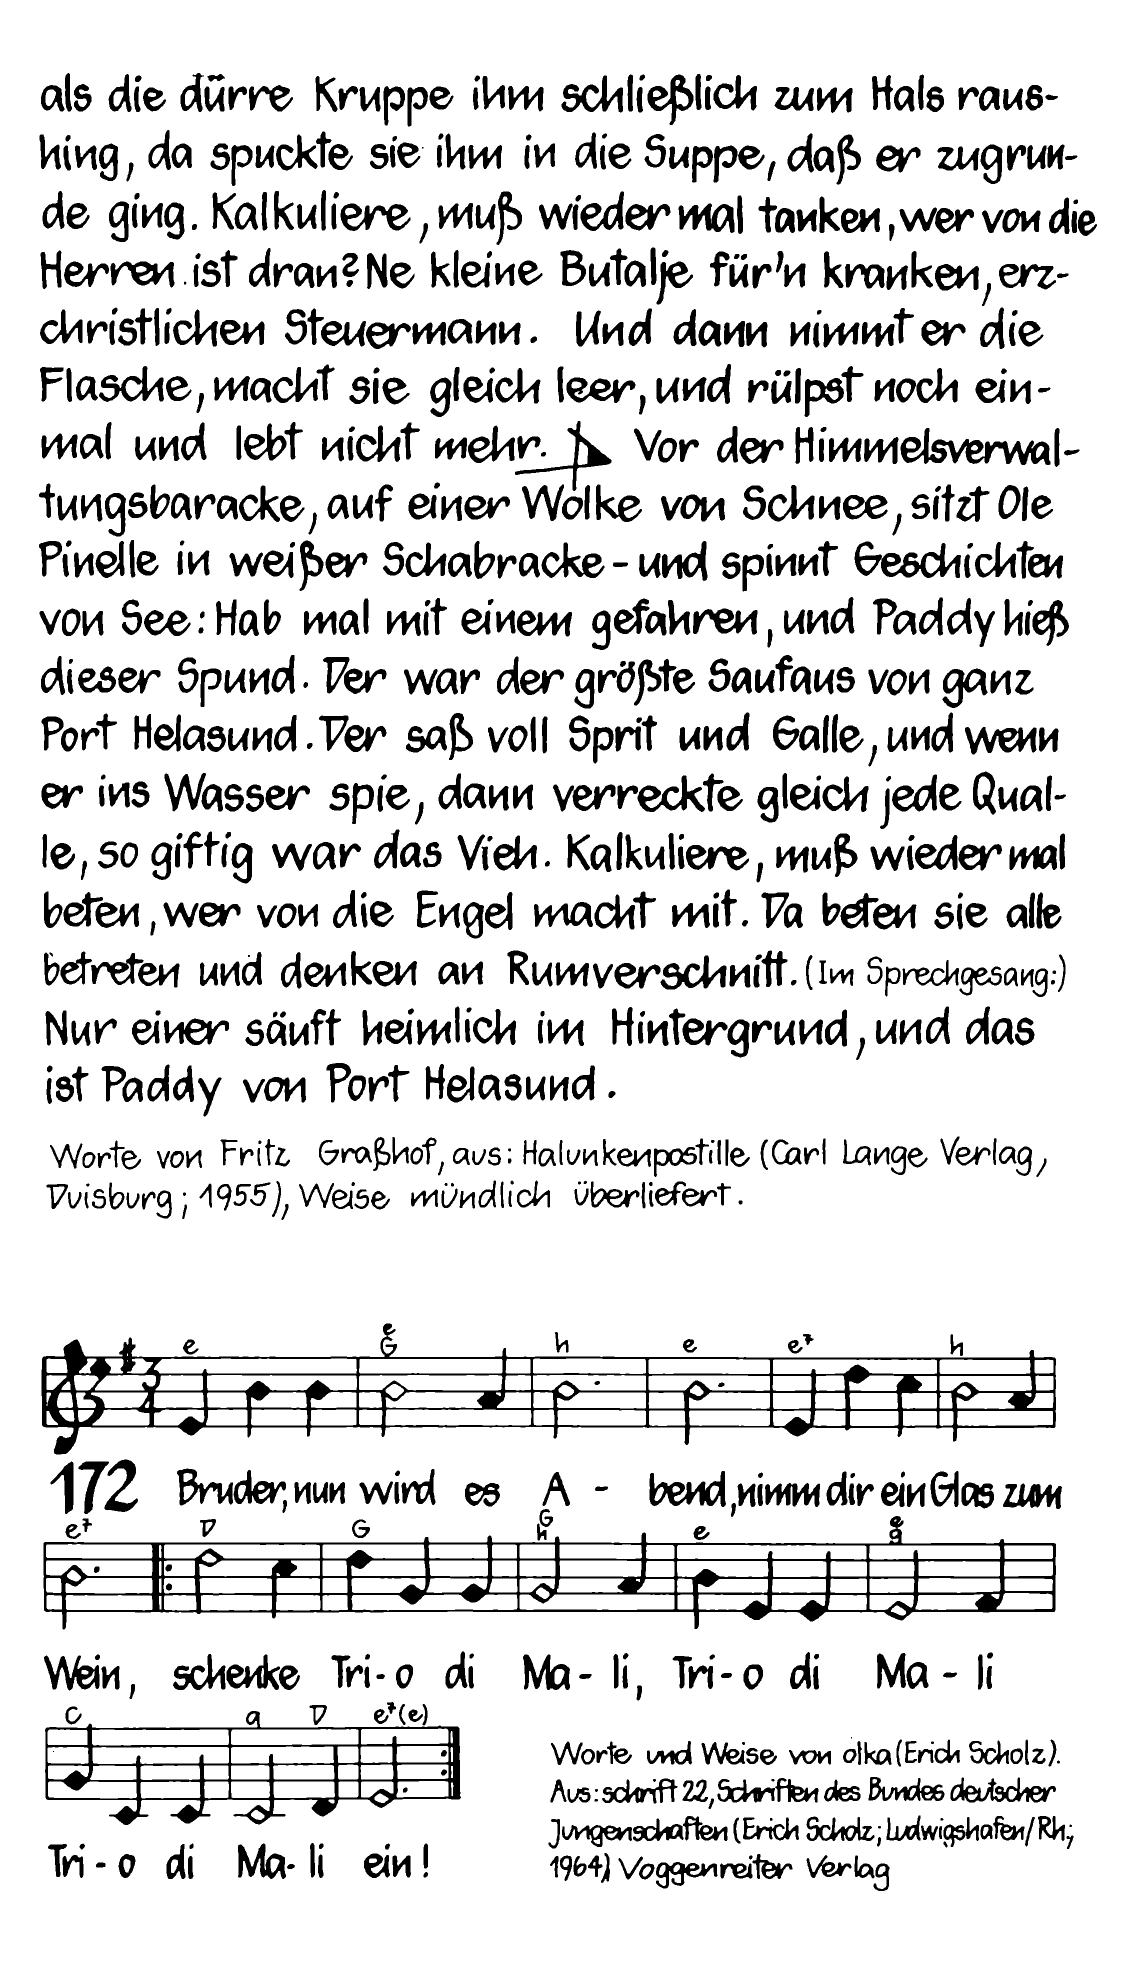 als die dürre Kruppe ihm schließlich zum Hals raus-
hing, da spuckte sie ihm in die Suppe, daß er zugrun-
de ging. Kalkuliere, muß wieder mal tanken, wer von die
Herren ist dran? Ne kleine Butalje für'n kranken, erz-
christlichen Steuermann. Und dann nimmt er die
Flasche, macht sie gleich leer, und rülpst noch ein-
mal und lebt nicht mehr. Vor der Himmelsverwal-
tungsbaracke, auf einer Wolke von Schnee, sitzt Ole
Pinelle in weißer Schabracke - und spinnt Geschichten
von See: Hab mal mit einem gefahren, und Paddy hieß
dieser Spund. Der war der größte Saufaus von ganz
Port Helasund. Der saß voll Sprit und Galle, und wenn
er ins Wasser spie, dann verreckte gleich jede Qual-
le, so giftig war das Vieh. Kalkuliere, muß wieder mal
beten, wer von die Engel macht mit. Da beten sie alle
betreten und denken an Rumverschnitt. (Im Sprechgesang:)
Nur einer säuft heimlich im Hintergrund, und das
ist Paddy von Port Helasund.
Worte von Fritz Graßhof, aus: Halunkenpostille (Carl Lange Verlag,
Duisburg; 1955), Weise mündlich überliefert.
e e G h e e7 h
3 4
172 Bruder, nun wird es A - bend, nimm dir ein Glas zum
e7 D G G h e e g
Wein, schenke Tri - o di Ma - li, Tri - o di Ma - li
C a D e7 (e)
Tri - o di Ma - li ein!
Worte und Weise von olka (Erich Scholz).
Aus: schrift 22, Schriften des Bundes deutscher
Jungenschaften (Erich Scholz; Ludwigshafen/Rh.;
1964), Voggenreiter Verlag